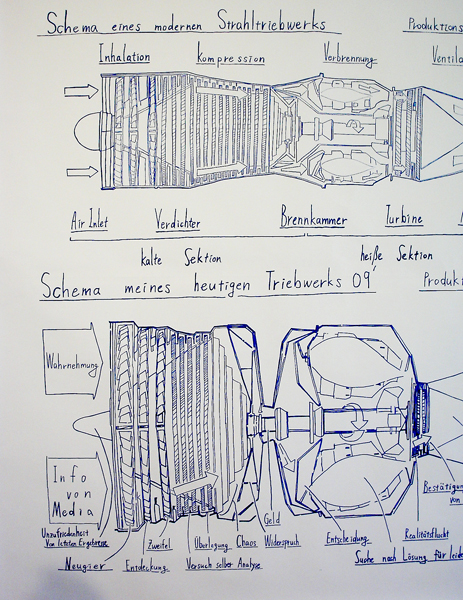 Schema eines modernen Strahltriebwerks
Produktions
Inhalation
Kompression
Verbrennung
Ventila
Air Inlet
Verdichter
Brennkammer
Turbine
kalte Sektion
heiße Sektion
Schema meines heutigen Triebwerks 09'
Produkti
Wahrnehmung
Info
von
Media
Unzufriedenheit
Von letzten Ergebnisse
Neugier
Entdeckung
Zweifel
Überlegung
Versuch selbst Analyse
Chaos
Geld
Widerspruch
Entscheidung
Realitätsflucht
Suche nach Lösung für leide
Bestätigun
von